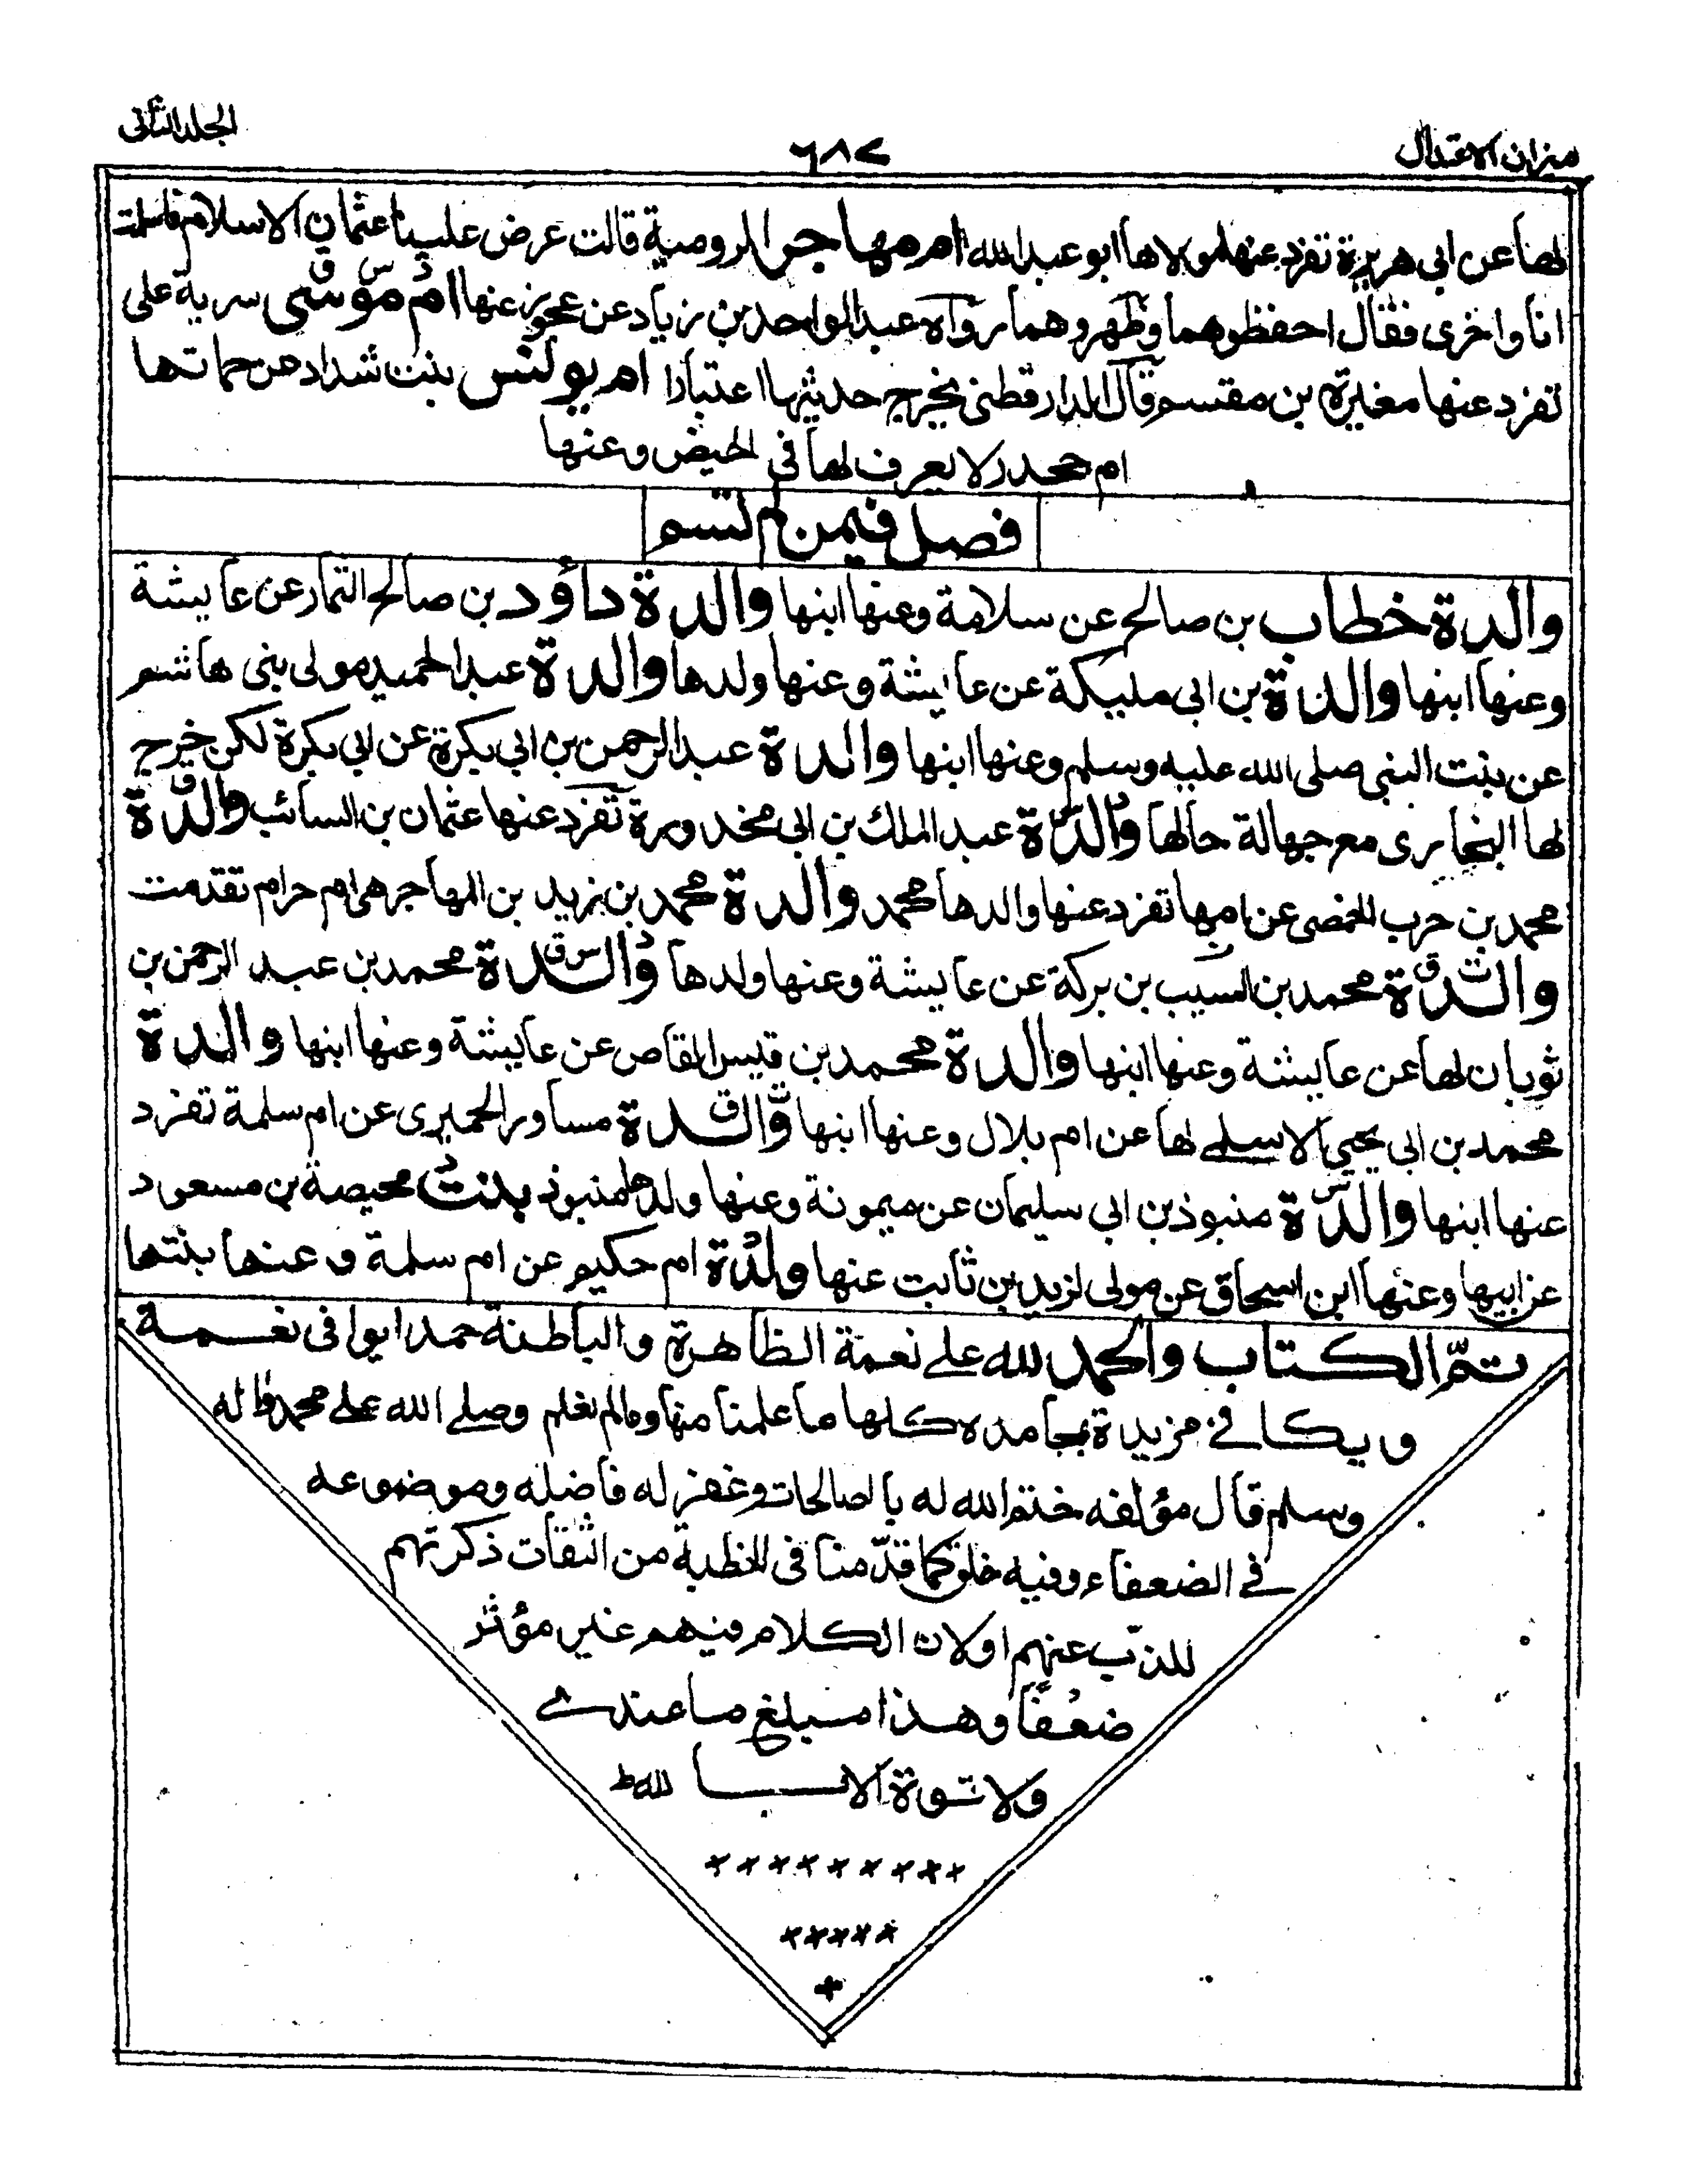 ميزان الاعتدال
٦٨٢
الجلد الثانى
لها عن ابى هريرة تفرد عنها مولاها ابو عبد الله ام مهاجر الرومية قالت عرض علينا عثمان الاسلام فاسلمت
انا واخرى فقال احفظوهما وطهروهما رواه عبد الواحد بن زياد عن عجوز عنها ام موسى سرية على
تفرد عنها مغيرة بن مقسم قال الدارقطنى يخرج حديثها اعتبارا ام يونس بنت شداد عن حماتها
ام جحدر لا يعرف لها فى الحيض وعنها
فصل فيمن لم تسم
والدة خطاب بن صالح عن سلامة وعنها ابنها والدة داؤد بن صالح التمار عن عايشة
وعنها ابنها والدة بن ابى مليكة عن عايشة وعنها ولدها والدة عبد الحميد مولى بنى هاشم
عن بنت النبى صلى الله عليه وسلم وعنها ابنها والدة عبد الرحمن بن ابى بكرة عن ابى بكرة لكن خرج
لها البخارى مع جهالة حالها والدة عبد الملك بن ابى محذورة تفرد عنها عثمان بن السائب والدة
محمد بن حرب الحمصى عن امها تفرد عنها والدها محمد والدة محمد بن يزيد بن المهاجر هى ام حرام تقدمت
والدة محمد بن السيب بن بركة عن عايشة وعنها ولدها والدة محمد بن عبد الرحمن بن
ثوبان لها عن عايشة وعنها ابنها والدة محمد بن قيس القاص عن عايشة وعنها ابنها والدة
محمد بن ابى يحيى الاسلمى لها عن ام بلال وعنها ابنها والدة مساور الحميرى عن ام سلمة تفرد
عنها ابنها والدة منبوذ بن ابى سليمان عن ميمونة وعنها ولدها منبوذ بنت محيصة بن مسعود
عن ابيها وعنها ابن اسحاق عن مولى لزيد بن ثابت عنها ولدة ام حكيم عن ام سلمة وعنها بنتها
تمّ الكتاب والحمد لله على نعمة الظاهرة والباطنة حمدا يوافى نعمة
ويكافى مزيدة بمحامده كلها ما علمنا منها ومالم نعلم وصلى الله على محمد واله
وسلم قال مؤلفه ختم الله له بالصالحات وغفر له فاضله وموضوعه
فى الضعفاء وفيه خلق كما قدّمنا فى الخطبة من الثقات ذكرتهم
للذبّ عنهم اولان الكلام فيهم غير مؤثر
ضعفًا وهذا مبلغ ما عندى
ولا قوة الا با لله ط